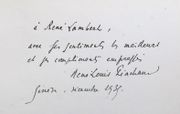 à René Lambert,
avec ses sentiments les meilleurs
et ses compliments empressés
René-Louis Piachaud
Genève. décembre 1935.